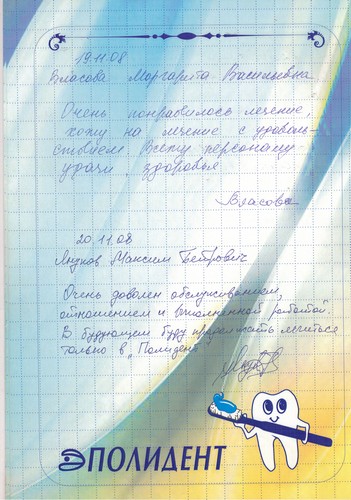 19.11.08
Власова Маргарита Васильевна
Очень понравилось лечение,
хожу на лечение с удоволь-
ствием. Всему персоналу
удачи, здоровья
Власова
20.11.08
Максим Петрович
Очень доволен обслуживанием,
отношением и выполненной работой.
В будующем буду продолжать лечиться
только в „Полидент"
ПОЛИДЕНТ